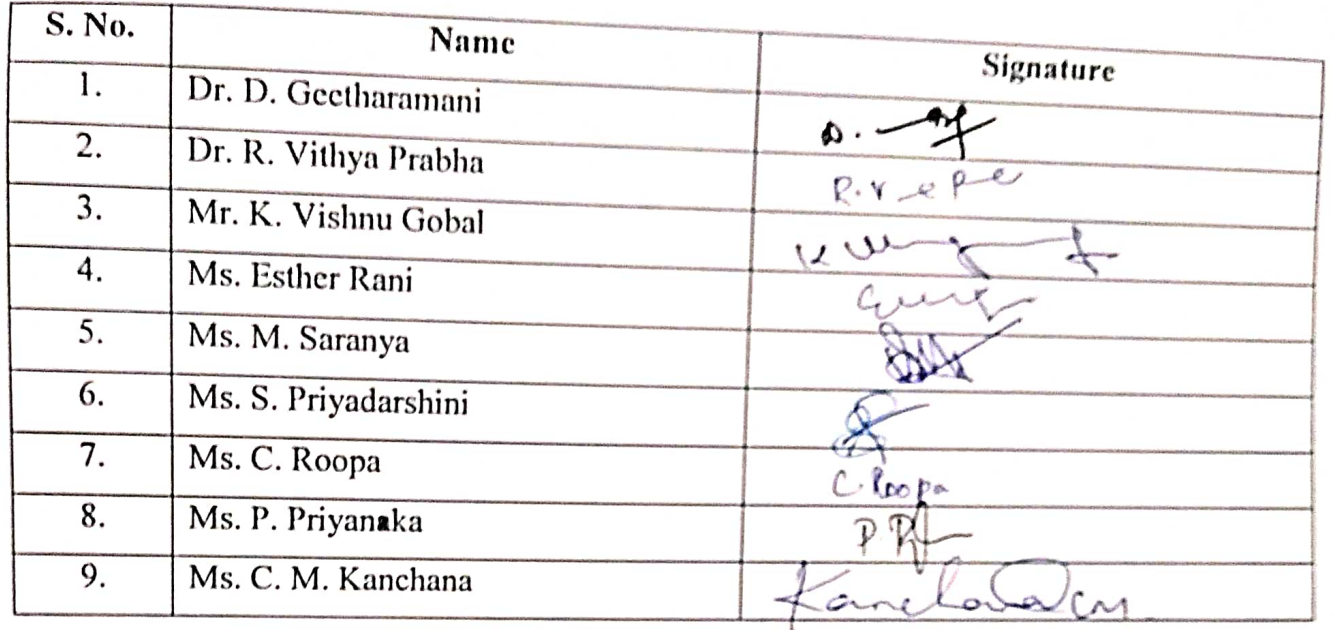 S. No. Name Signature
1. Dr. D. Geetharamani D.
2. Dr. R. Vithya Prabha
3. Mr. K. Vishnu Gobal
4. Ms. Esther Rani
5. Ms. M. Saranya
6. Ms. S. Priyadarshini
7. Ms. C. Roopa C. Roopa
8. Ms. P. Priyanaka
9. Ms. C. M. Kanchana Kanchana CM